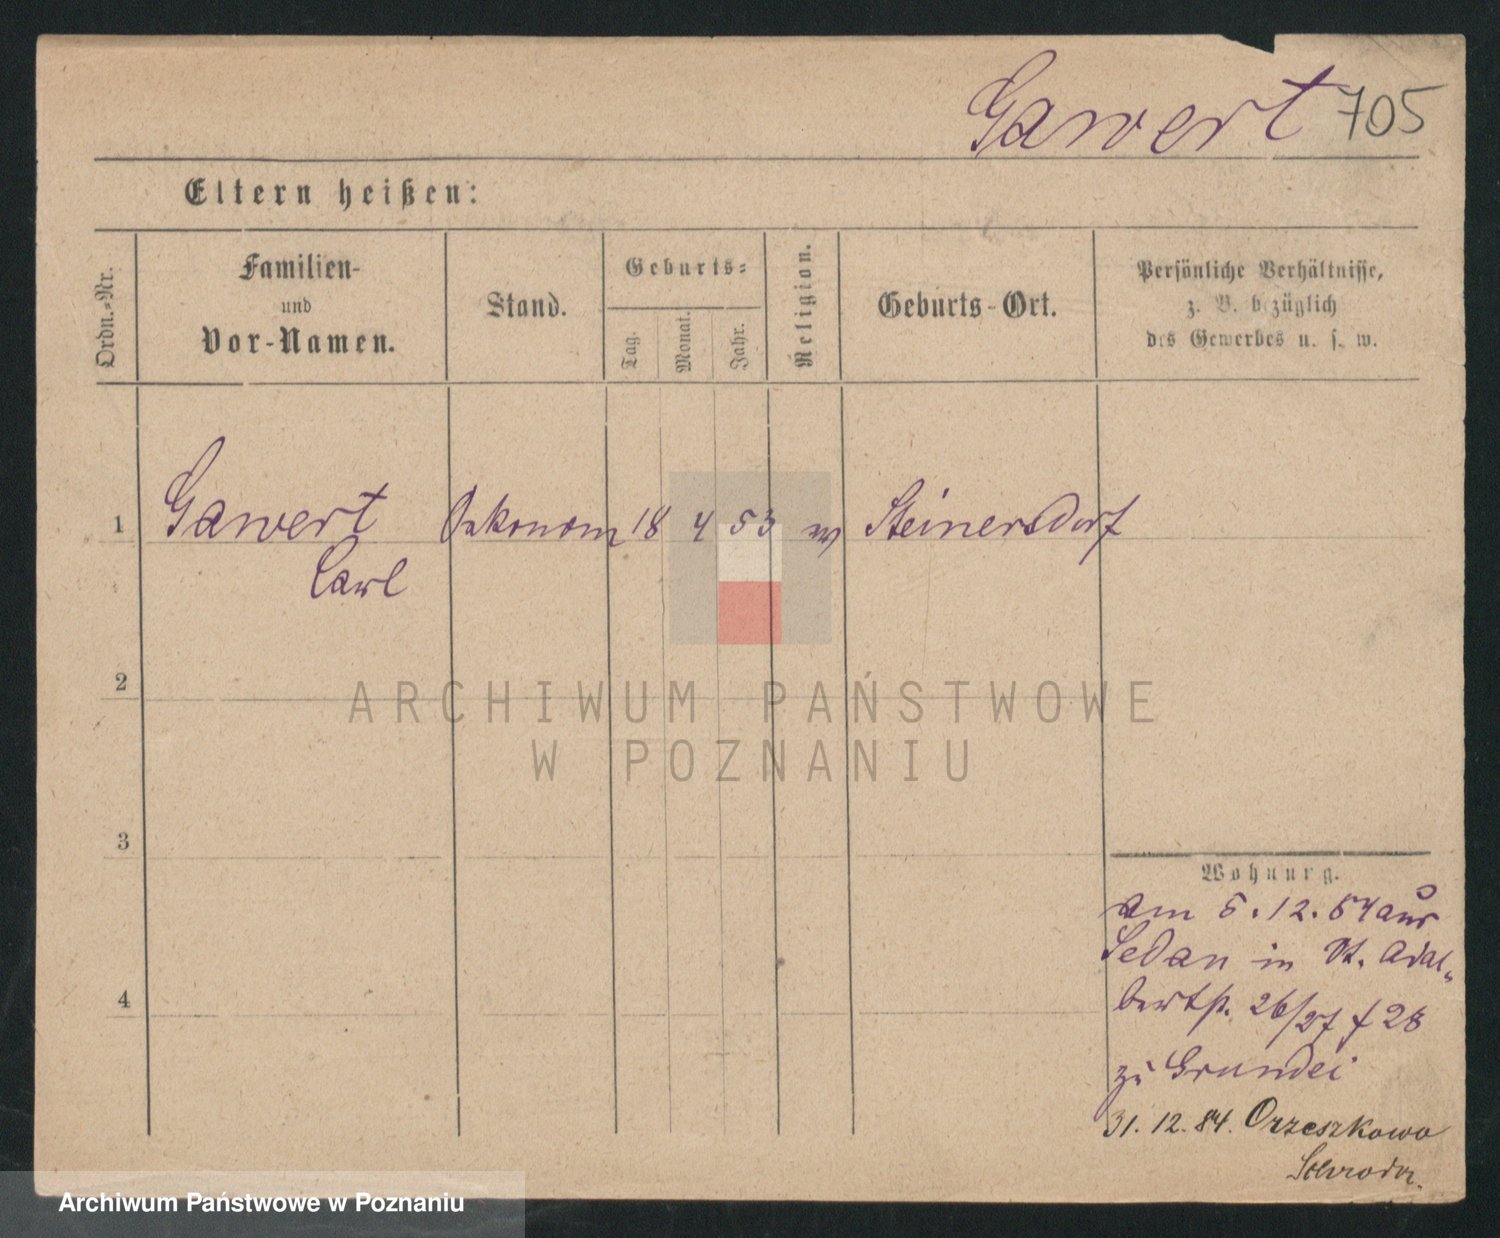 Gawert 705
Eltern heißen:
Ordn.-Nr.
Familien-
und
Vor-Namen.
Stand.
Geburts-
Tag.
Monat.
Jahr.
Religion.
Geburts-Ort.
Persönliche Verhältnisse,
z. B. bezüglich
des Gewerbes u. s. w.
1 Gawert Oekonom 18 4 53 Steinersdorf
Carl
2
3
4
ARCHIWUM PAŃSTWOWE
W POZNANIU
Wohnung.
am 5. 12. 84 aus
Sedan in St. Adal-
bertst. 26/27 f 28
zu Grundei
31. 12. 84. Orzeszkowo
Schroda.
Archiwum Państwowe w Poznaniu